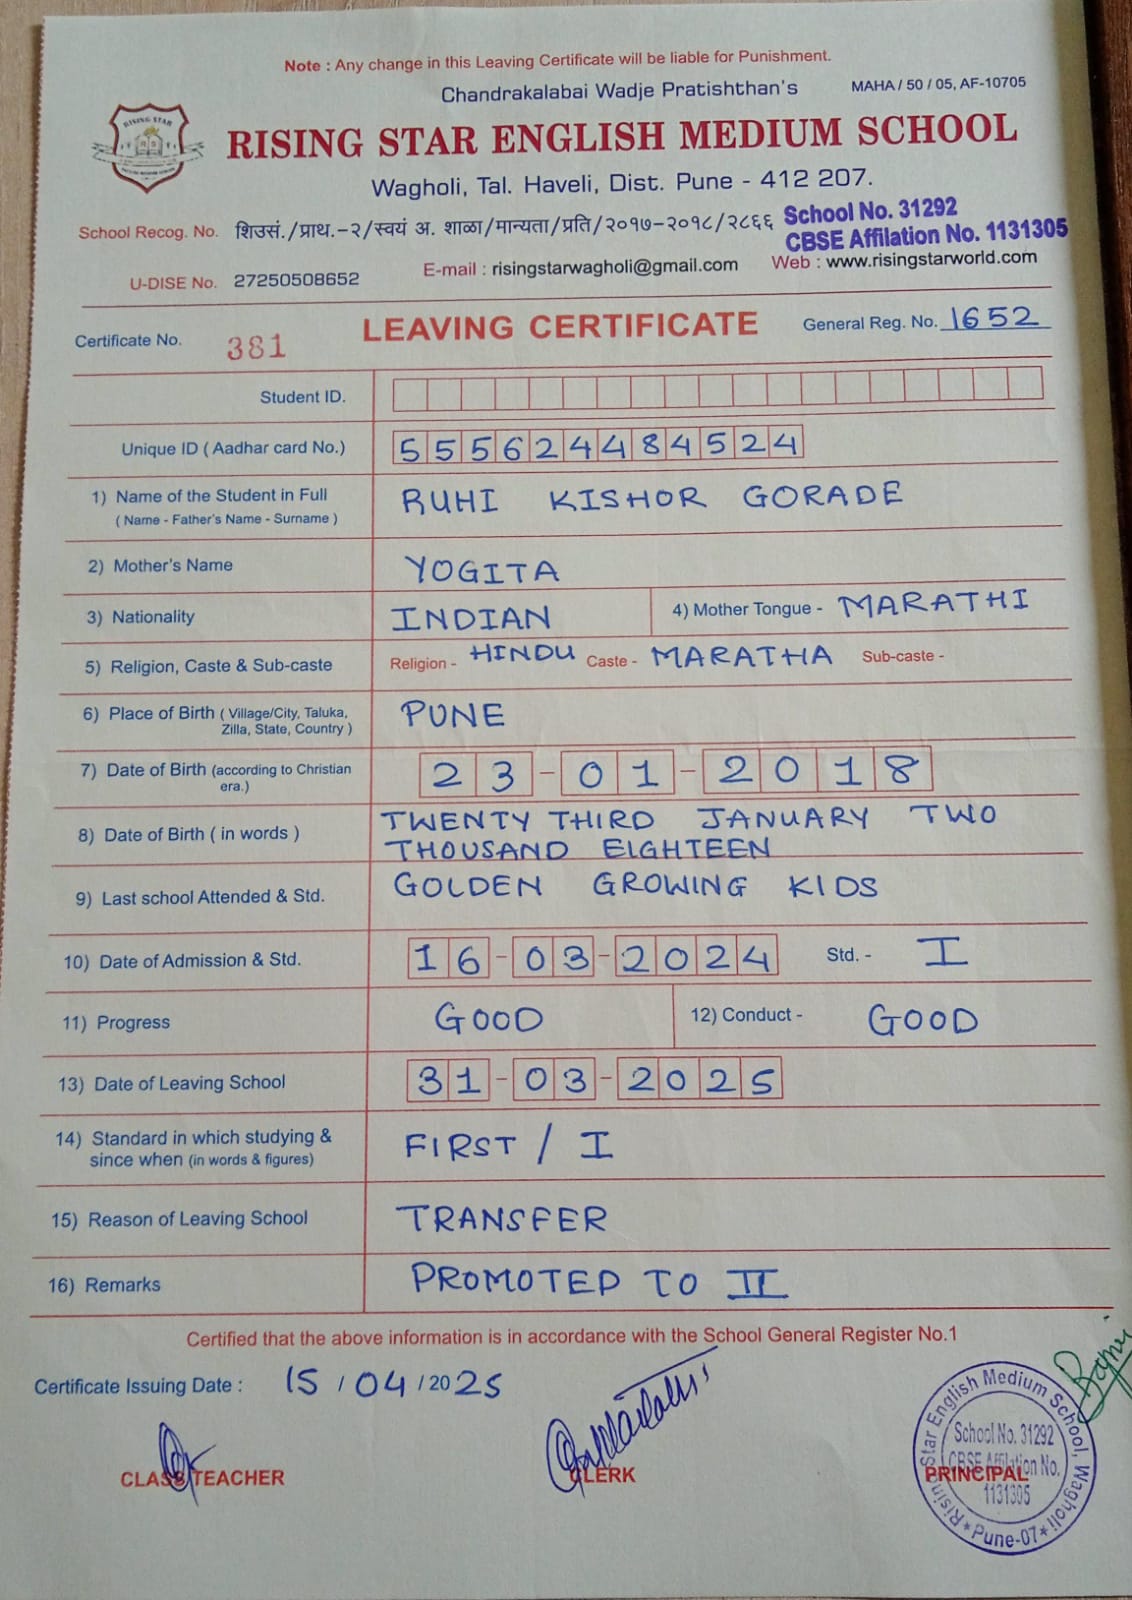 Note : Any change in this Leaving Certificate will be liable for Punishment.
Chandrakalabai Wadje Pratishthan's MAHA / 50 / 05, AF-10705
RISING STAR
RISING STAR ENGLISH MEDIUM SCHOOL
Wagholi, Tal. Haveli, Dist. Pune - 412 207.
School Recog. No. शिउसं./प्राथ.-२/स्वयं अ. शाळा/मान्यता/प्रति/२०१७-२०१८/२८६६ School No. 31292
CBSE Affilation No. 1131305
U-DISE No. 27250508652 E-mail : risingstarwagholi@gmail.com Web : www.risingstarworld.com
Certificate No. 381 LEAVING CERTIFICATE General Reg. No. 1652
Student ID.
Unique ID ( Aadhar card No.) 555624484524
1) Name of the Student in Full RUHI KISHOR GORADE
( Name - Father's Name - Surname )
2) Mother's Name YOGITA
3) Nationality INDIAN 4) Mother Tongue - MARATHI
5) Religion, Caste & Sub-caste Religion - HINDU Caste - MARATHA Sub-caste -
6) Place of Birth ( Village/City, Taluka, PUNE
Zilla, State, Country )
7) Date of Birth (according to Christian 23-01-2018
era.)
8) Date of Birth ( in words ) TWENTY THIRD JANUARY TWO
THOUSAND EIGHTEEN
9) Last school Attended & Std. GOLDEN GROWING KIDS
10) Date of Admission & Std. 16-03-2024 Std. - I
11) Progress GOOD 12) Conduct - GOOD
13) Date of Leaving School 31-03-2025
14) Standard in which studying & FIRST / I
since when (in words & figures)
15) Reason of Leaving School TRANSFER
16) Remarks PROMOTED TO II
Certified that the above information is in accordance with the School General Register No.1
Certificate Issuing Date : 15 / 04 / 2025
CLASS TEACHER CLERK PRINCIPAL
Rising Star English Medium School, Wagholi
Pune-07
School No. 31292
CBSE Affilation No.
1131305